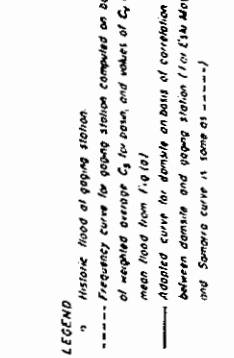 LEGEND
Historic flood at gaging station.
Frequency curve for gaging station computed on ba
of weighted average Cs for basin, and values of Cv
mean flood from Fig (a)
Adopted curve for damsite on basis of correlation
between damsite and gaging station (for Eski Mo
and Samarra curve is same as -----)